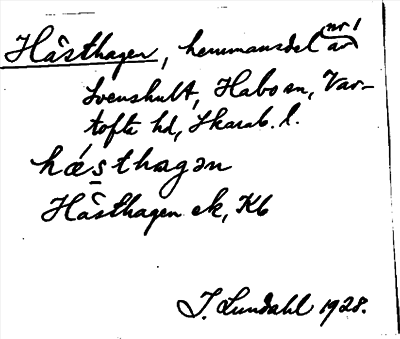 Hästhagen, hemmansdel nr 1 av
Svenshult, Habo sn, Var-
tofte hd, Skarab. l.
hæsthagən
Hästhagen ek, Kb
I. Lundahl 1928.